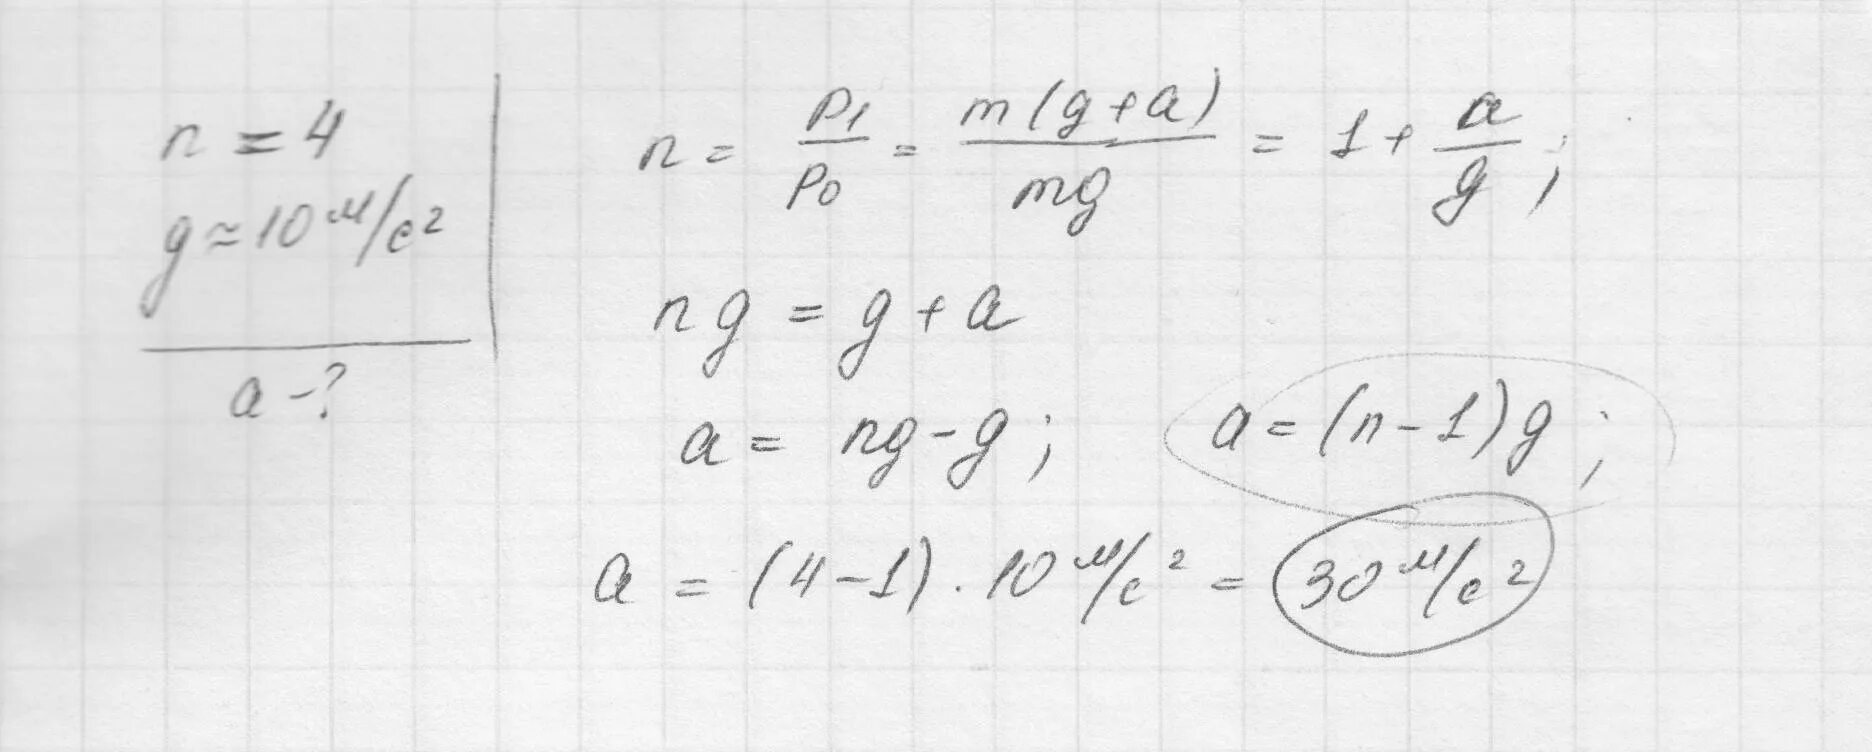 n = 4
g ≈ 10 м/с²
a - ?
n = P1/P0 = m(g+a)/mg = 1 + a/g ;
ng = g + a
a = ng - g ; a = (n - 1)g ;
a = (4 - 1) · 10 м/с² = 30 м/с²